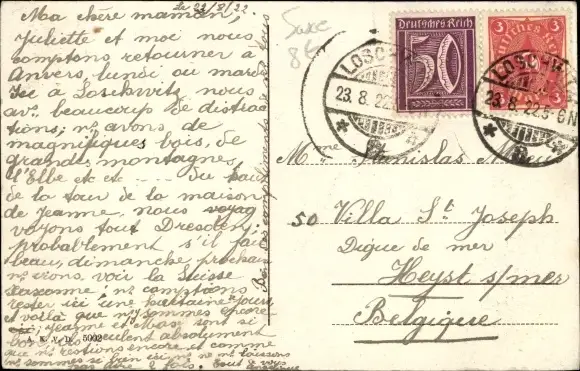 le 22/8/22
Ma chère maman,
Juliette et moi nous
comptons retourner à
Anvers lundi ou mardi
Ici à Loschwitz nous
av. beaucoup de distrac
tions; ns avons de
magnifiques bois, de
grandes montagnes,
l'Elbe etc etc --- Du haut
de la tour de la maison
de Jeanne, nous voyag
voyons tout Dresden;
probablement s'il fait
beau, dimanche prochain
ns irons voir la Suisse
saxonne; ns comptons
rester ici une huitaine jours
et voilà que ns sommes encore
ici; Jeanne et sont si
bons, excellent absolument
que ns restions encore et comme
ns sommes si bien ici; ns ne ns laissons
pas dire 2 fois. Tout à vous
Bien des compliments de
A. K. V. D. 5002
Saxe
Deutsches Reich
50
Deutsches Reich
3
3
LOSCHWITZ
23.8.22.
LOSCHWITZ
23.8.22.5-6N
Mme Stanislas
50 Villa St. Joseph
Digue de mer
Heyst s/mer
Belgique